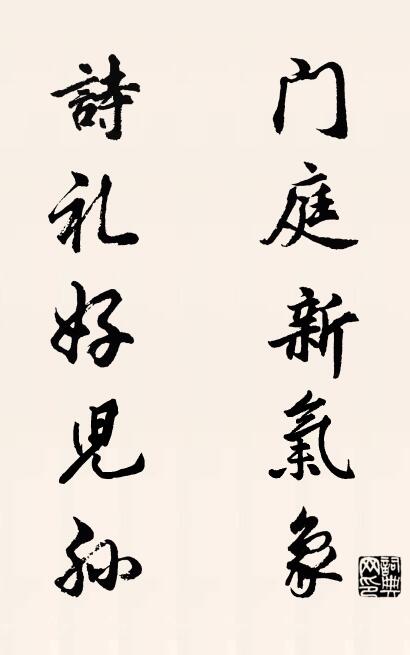 门庭新氣象
詩礼好児孙
詞典网印